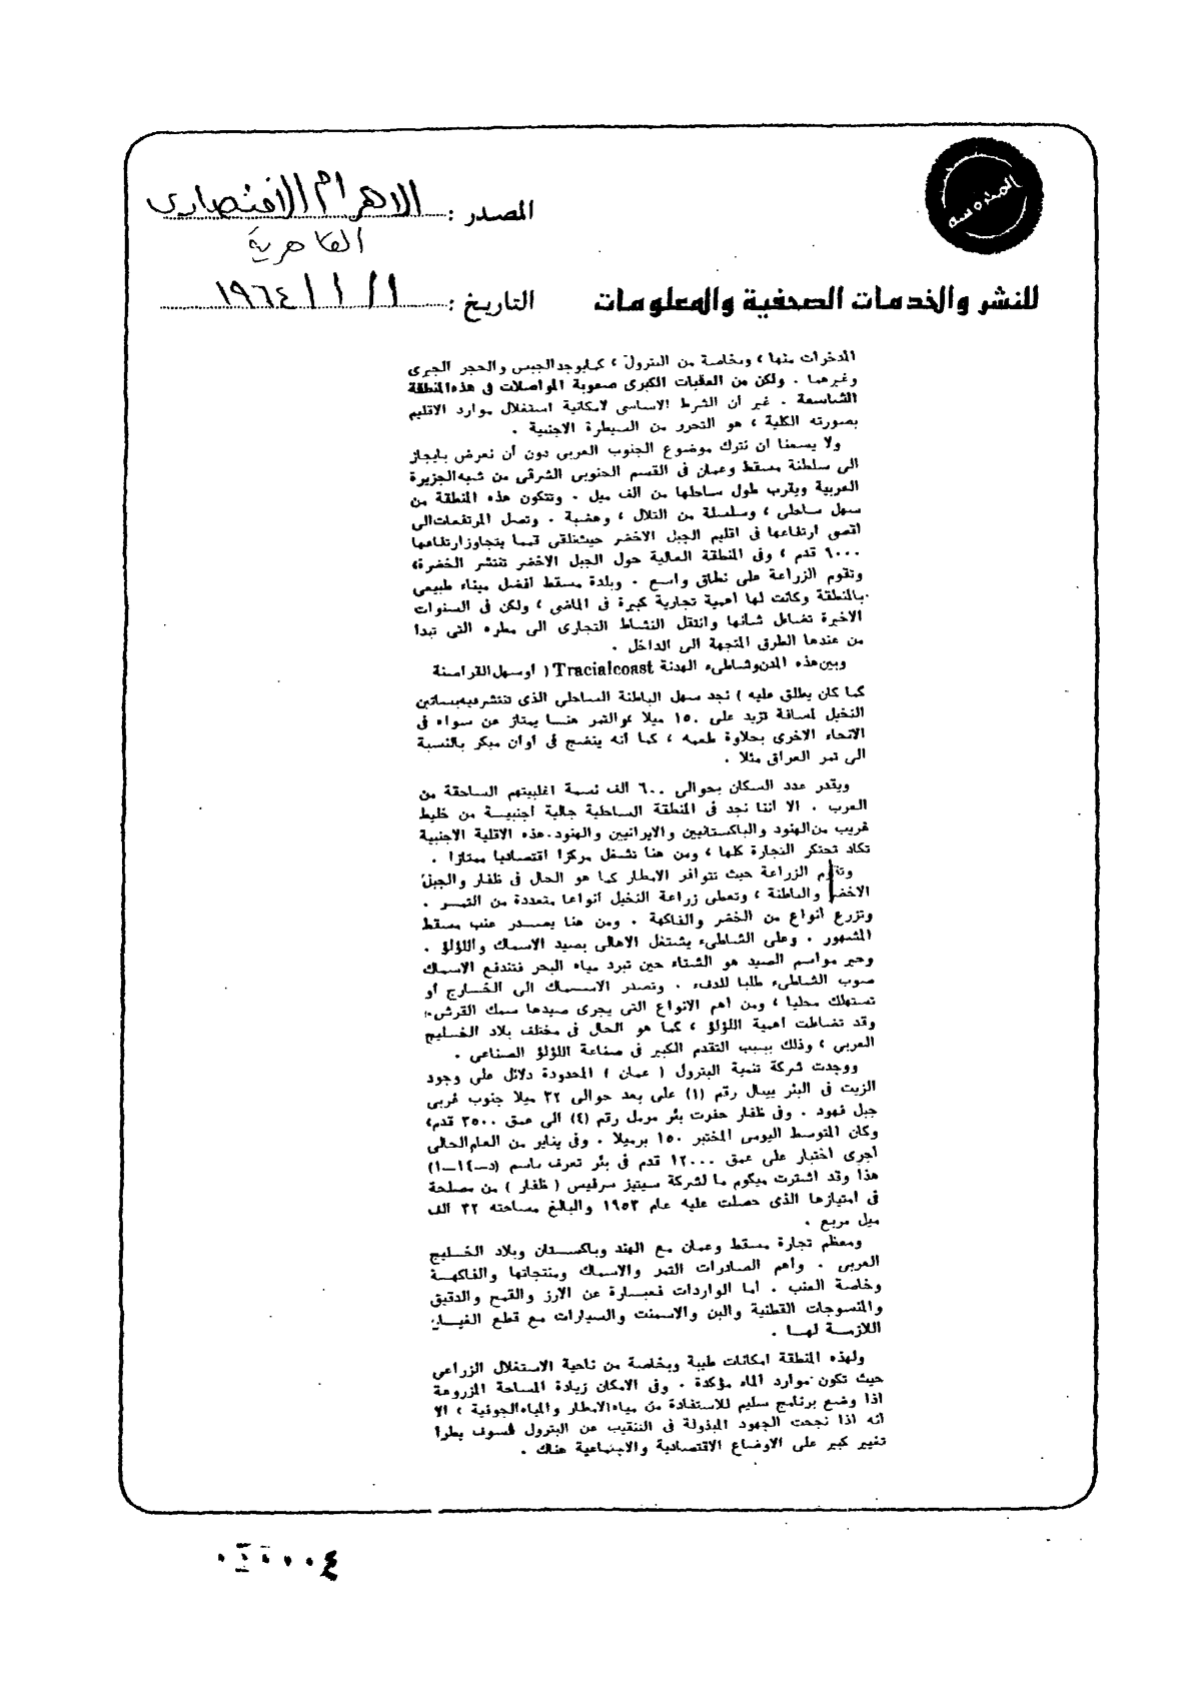 المحروسة
المصدر : الاهرام الاقتصادى
القاهرية
للنشر والخدمات الصحفية والمعلومات
التاريخ : ١ / ١ / ١٩٦٤
المدخرات منها ، وبخاصة من البترول ، كما يوجد الجبس والحجر الجيرى
وغيرهما . ولكن من العقبات الكبرى صعوبة المواصلات فى هذه المنطقة
الشاسعة . غير أن الشرط الاساسى لامكانية استغلال موارد الاقليم
بصورته الكلية ، هو التحرر من السيطرة الاجنبية .
ولا يسعنا ان نترك موضوع الجنوب العربى دون أن نعرض بايجاز
الى سلطنة مسقط وعمان فى القسم الجنوبى الشرقى من شبه الجزيرة
العربية ويقرب طول ساحلها من الف ميل . وتتكون هذه المنطقة من
سهل ساحلى ، وسلسلة من التلال ، وهضبة . وتصل المرتفعات الى
اقصى ارتفاعها فى اقليم الجبل الاخضر حيث نلقى قمما يتجاوز ارتفاعها
٩٠٠٠ قدم ، وفى المنطقة العالية حول الجبل الاخضر تنتشر الخضرة ،
وتقوم الزراعة على نطاق واسع . وبلدة مسقط افضل ميناء طبيعى
بالمنطقة وكانت لها اهمية تجارية كبيرة فى الماضى ، ولكن فى السنوات
الاخيرة تضاءل شأنها وانتقل النشاط التجارى الى مطره التى تبدأ
من عندها الطرق المتجهة الى الداخل .
وبين هذه المدن وشاطىء الهدنة Tracialcoast ( أو سهل القراصنة
كما كان يطلق عليه ) نجد سهل الباطنة الساحلى الذى تنتشر فيه بساتين
النخيل لمسافة تزيد على ١٥٠ ميلا ، والتمر هنا يمتاز عن سواه فى
الانحاء الاخرى بحلاوة طعمه ، كما أنه ينضج فى اوان مبكر بالنسبة
الى تمر العراق مثلا .
ويقدر عدد السكان بحوالى ٦٠٠ الف نسمة اغلبيتهم الساحقة من
العرب . الا اننا نجد فى المنطقة الساحلية جالية اجنبية من خليط
غريب من الهنود والباكستانيين والايرانيين والهنود . هذه الاقلية الاجنبية
تكاد تحتكر التجارة كلها ، ومن هنا تشغل مركزا اقتصاديا ممتازا .
وتقوم الزراعة حيث تتوافر الامطار كما هو الحال فى ظفار والجبل
الاخضر والباطنة ، وتعطى زراعة النخيل أنواعا متعددة من التمر .
وتزرع أنواع من الخضر والفاكهة . ومن هنا يصدر عنب مسقط
المشهور . وعلى الشاطىء يشتغل الاهالى بصيد الاسماك واللؤلؤ .
وخير مواسم الصيد هو الشتاء حين تبرد مياه البحر فتندفع الاسماك
صوب الشاطىء طلبا للدفء . وتصدر الاسماك الى الخارج أو
تستهلك محليا ، ومن أهم الانواع التى يجرى صيدها سمك القرش .
وقد تضاءلت أهمية اللؤلؤ ، كما هو الحال فى مختلف بلاد الخليج
العربى ، وذلك بسبب التقدم الكبير فى صناعة اللؤلؤ الصناعى .
ووجدت شركة تنمية البترول ( عمان ) المحدودة دلائل على وجود
الزيت فى البئر يبال رقم (١) على بعد حوالى ٢٢ ميلا جنوب غربى
جبل فهود . وفى ظفار حفرت بئر مرمل رقم (٤) الى عمق ٣٥٠٠ قدم ،
وكان المتوسط اليومى المختبر ١٥٠ برميلا . وفى يناير من العام الحالى
أجرى اختبار على عمق ١٢٠٠٠ قدم فى بئر تعرف باسم (د-١٤-١)
هذا وقد اشترت ميكوم ما لشركة سيتيز سرفيس ( ظفار ) من مصلحة
فى امتيازها الذى حصلت عليه عام ١٩٥٣ والبالغ مساحته ٣٢ الف
ميل مربع .
ومعظم تجارة مسقط وعمان مع الهند وباكستان وبلاد الخليج
العربى . وأهم الصادرات التمر والاسماك ومنتجاتها والفاكهة
وخاصة العنب . أما الواردات فعبارة عن الارز والقمح والدقيق
والمنسوجات القطنية والبن والاسمنت والسيارات مع قطع الغيار
اللازمة لها .
ولهذه المنطقة امكانات طيبة وبخاصة من ناحية الاستغلال الزراعى
حيث تكون موارد الماء مؤكدة . وفى الامكان زيادة المساحة المزروعة
اذا وضع برنامج سليم للاستفادة من مياه الامطار والمياه الجوفية ، الا
أنه اذا نجحت الجهود المبذولة فى التنقيب عن البترول فسوف يطرأ
تغيير كبير على الاوضاع الاقتصادية والاجتماعية هناك .